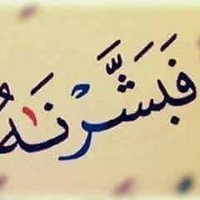 فَبَشَّرْنَٰهُ